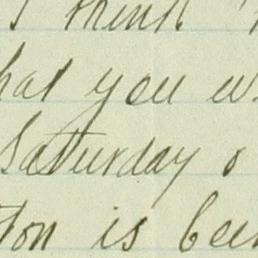 I think
hat you w
Saturday o
ton is bee